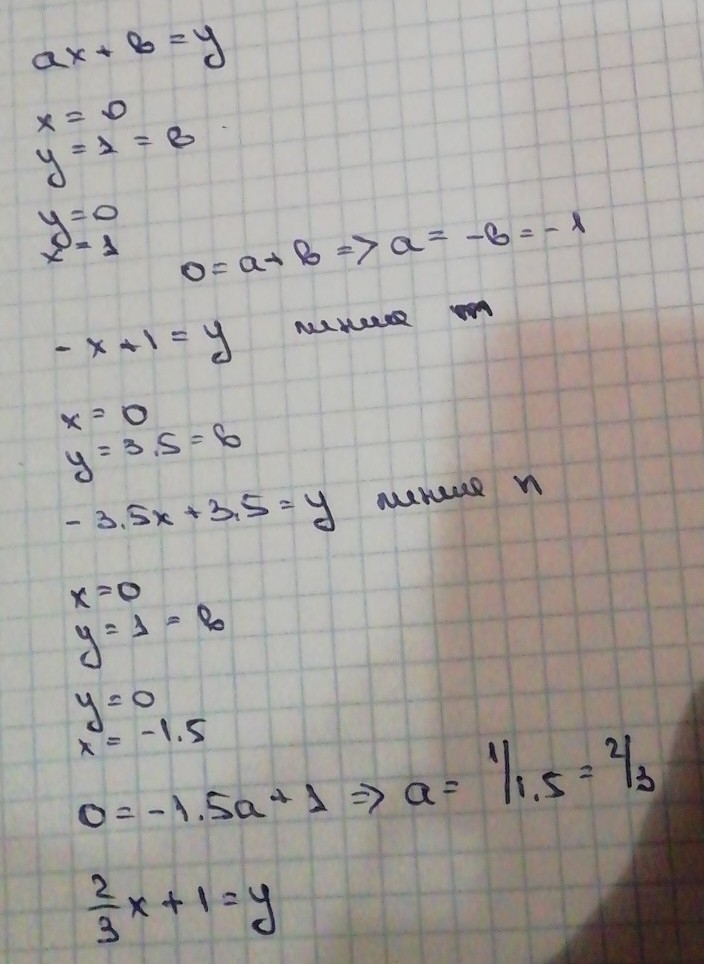 ax + в = y
x = 0
y = 1 = в
y = 0
x = 1
0 = a + в => a = -в = -1
- x + 1 = y линия m
x = 0
y = 3.5 = в
- 3.5x + 3.5 = y линия n
x = 0
y = 1 = в
y = 0
x = -1.5
0 = -1.5a + 1 => a = 1/1.5 = 2/3
2/3 x + 1 = y